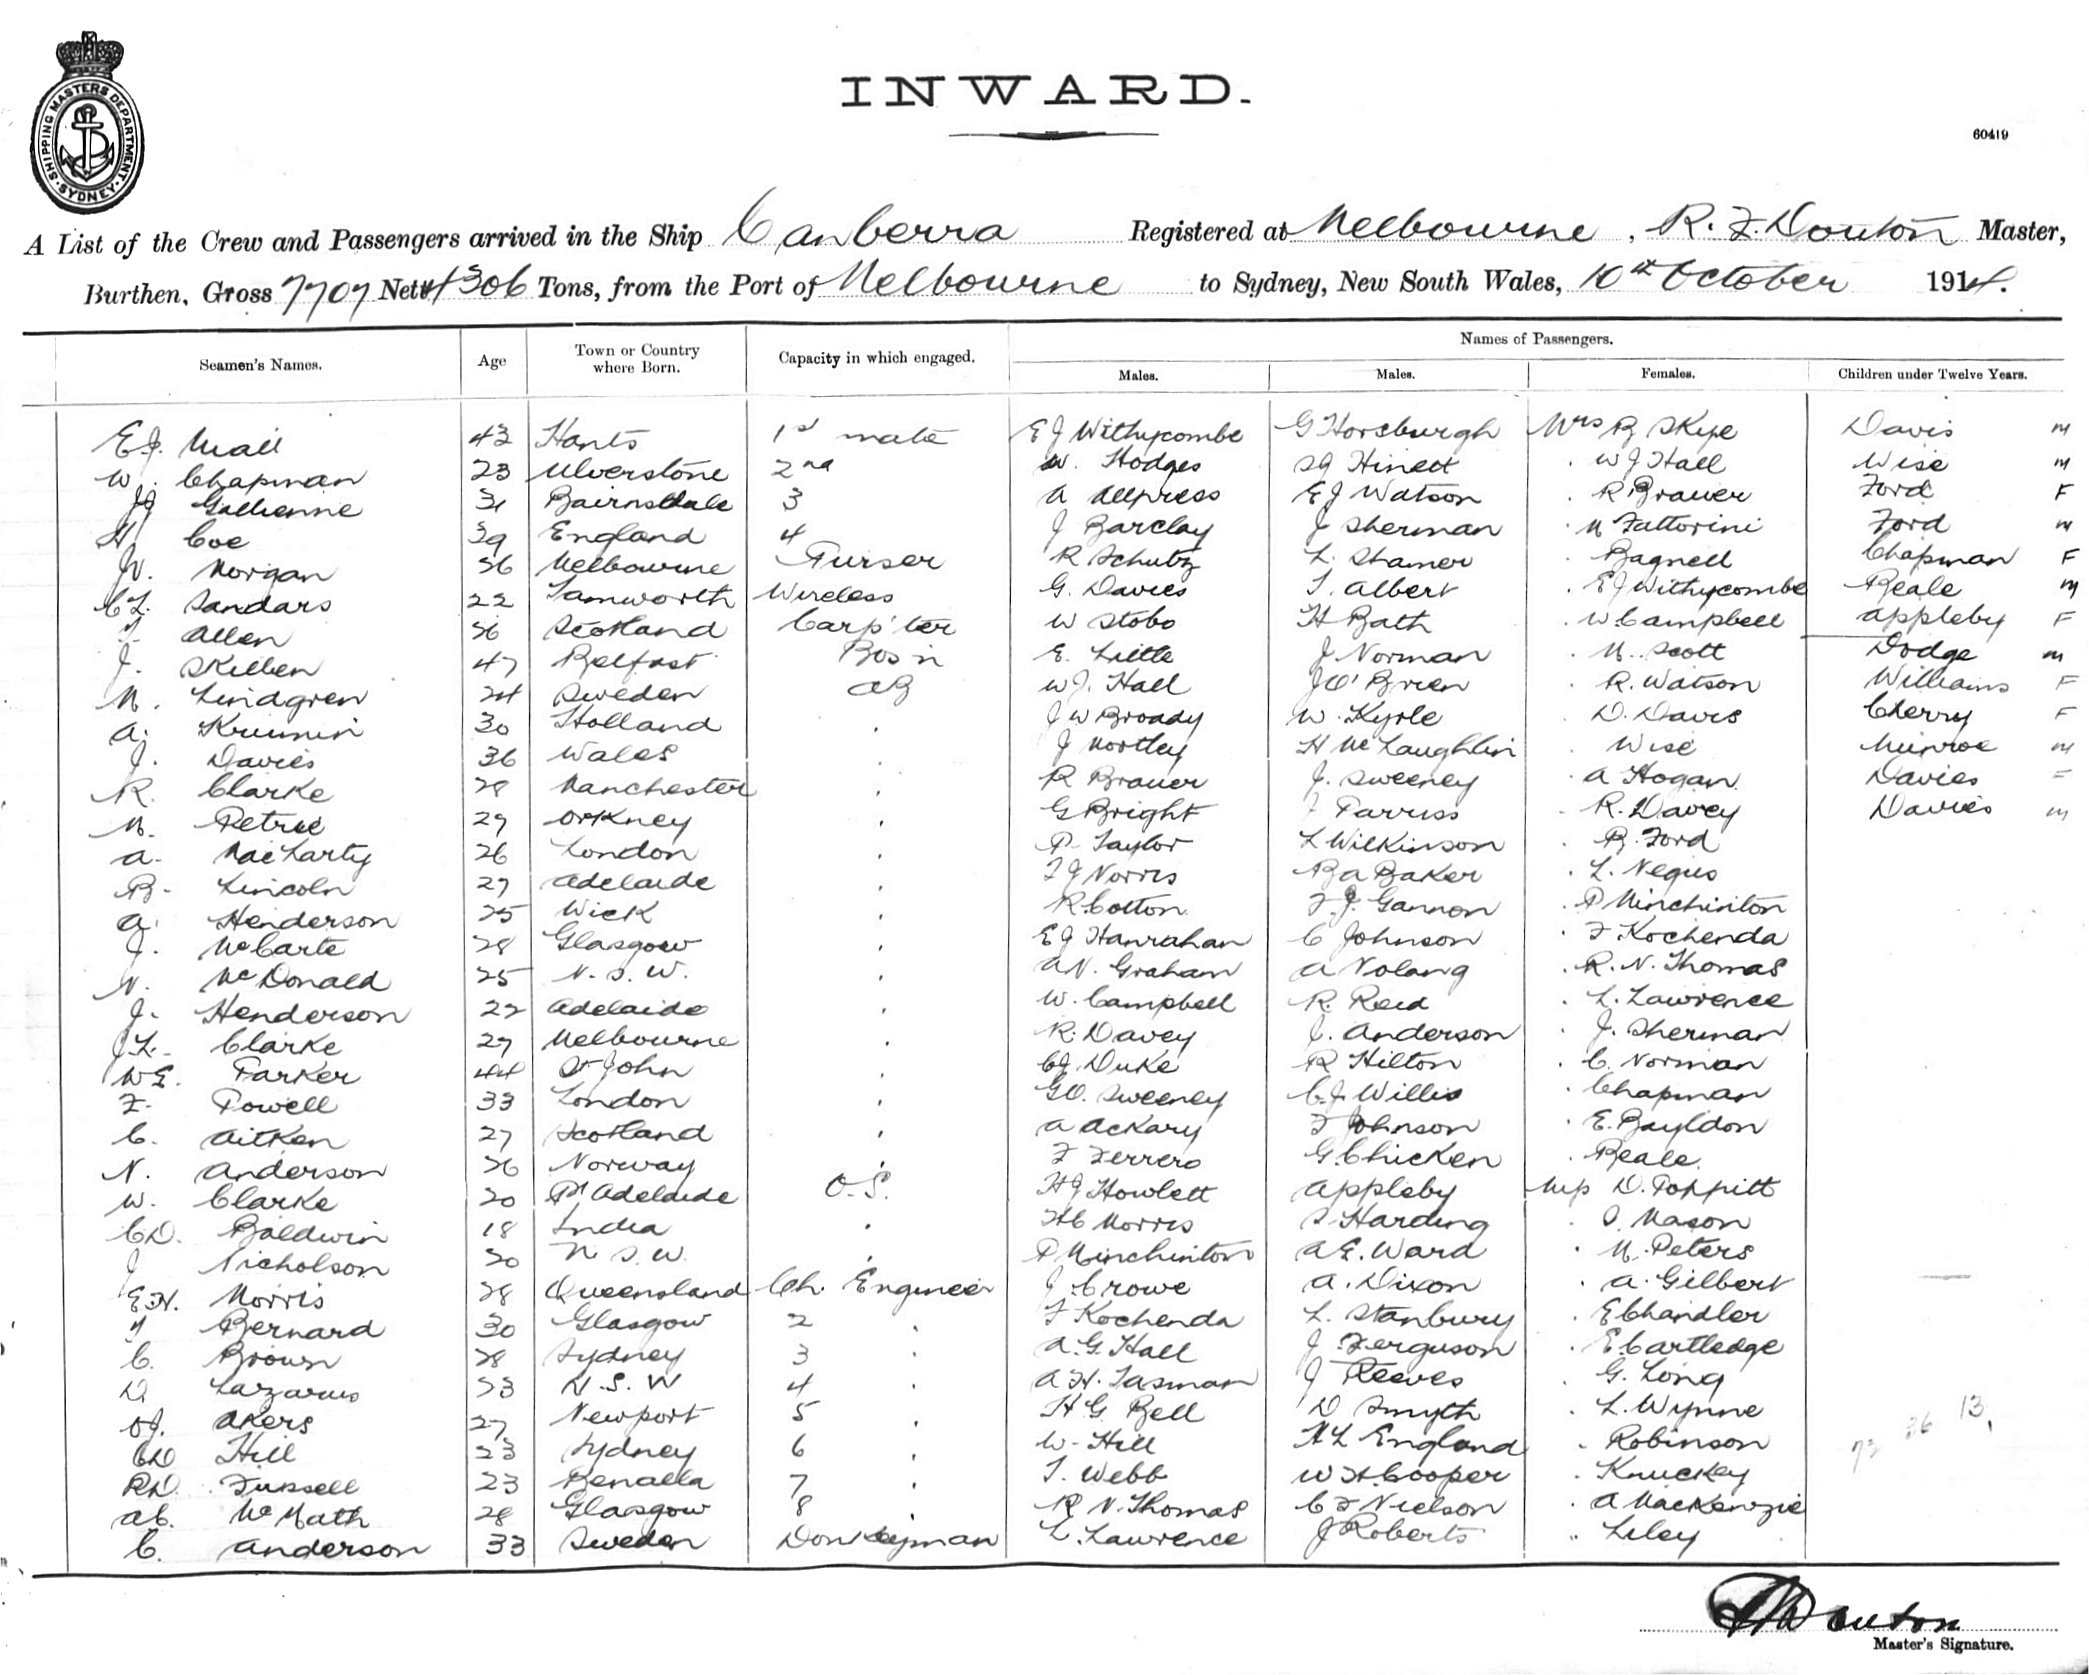 SHIPPING MASTERS DEPARTMENT
SYDNEY
INWARD.
60419
A List of the Crew and Passengers arrived in the Ship Canberra Registered at Melbourne, R. F. Douton Master,
Burthen, Gross 7707 Nett 4306 Tons, from the Port of Melbourne to Sydney, New South Wales, 10th October 1914.
Names of Passengers.
Seamen's Names. Age Town or Country where Born. Capacity in which engaged. Males. Males. Females. Children under Twelve Years.
E.J. Mail 43 Hants 1st mate E J Withycombe G Horsburgh Mrs B Skye Davis M
W. Chapman 23 Ulverstone 2nd W. Hodges Hinett . W J Hall Wise M
Bairnsdale 3 A Allpress E J Watson . R Brauer Ford F
H Coe 39 England 4 J Barclay J Sherman . M Fattorini Ford M
Morgan 56 Melbourne Purser R Schutz L. Shamer . Bagnell Chapman F
C L. Sandars 22 Tamworth Wireless G. Davies T. Albert . E J Withycombe Beale M
Allen 56 Scotland Carp'ter W Stobo H Bath . W Campbell Appleby F
J. Skillen 47 Belfast Bos'n E. Little J Norman . M. Scott Dodge M
M. Lindgren 24 Sweden AB W J. Hall J O'Brien . R. Watson Williams F
A. 30 Holland . J W Broady W. Kyrle . D. Davis Cherry F
J. Davies 36 Wales . J Mortley H McLaughlin . Wise Munroe M
R. Clarke 28 Manchester . R Brauer J. Sweeney . A Hogan Davies F
M. Petrie 29 Orkney . G Bright Parruss . R. Davey Davies M
A. MacLarty 26 London . P. Taylor L Wilkinson . B. Ford
B. Lincoln 27 Adelaide . T J Norris B A Baker . L. Negus
A. Henderson 25 Wick . R. Cotton F. J. Gannon . P Minchinton
J. McCarte 28 Glasgow . E J Hanrahan C Johnson . F. Kochenda
N. McDonald 25 N. S. W. . A N. Graham A Nolang . R. N. Thomas
J. Henderson 22 Adelaide . W. Campbell R. Reid . L. Lawrence
J L. Clarke 27 Melbourne . R. Davey C. Anderson . J. Sherman
W E. Parker 44 St John . C J. Duke R Hilton . C. Norman
F. Powell 33 London . G O. Sweeney C. J. Willis . Chapman
C. Aitken 27 Scotland . A Ackary F Johnson . E. Bayldon
N. Anderson 26 Norway . F Ferrero G. Chicken . Beale.
W. Clarke 20 Pt Adelaide O.S. H J Howlett Appleby Miss D. Poppitt
C D. Baldwin 18 India . H C Morris S Harding . O Mason
J Nicholson 20 N S. W. . P Minchinton A E. Ward . M. Peters
E H. Morris 28 Queensland Ch. Engineer J Crowe A. Dixon . A. Gilbert
Bernard 30 Glasgow 2 . F Kochenda L. Stanbury . E Chandler
C. Brown 28 Sydney 3 . A. G. Hall J Ferguson . E Cartledge
D. Lazarus 23 N. S. W 4 . A H. Tasman J Reeves . G. Long
O J. Akers 27 Newport 5 . H. G. Bell D Smyth . L. Wynne
C D Hill 23 Sydney 6 . W. Hill H L England . Robinson
R D. Fussell 23 Benalla 7 . T. Webb W H Cooper . Knuckey
A C. McMath 28 Glasgow 8 . R N. Thomas C F Nielson . A MacKenzie
C. Anderson 33 Sweden Donkeyman L. Lawrence J Roberts .. Liley
73 36 13
Douton
Master's Signature.